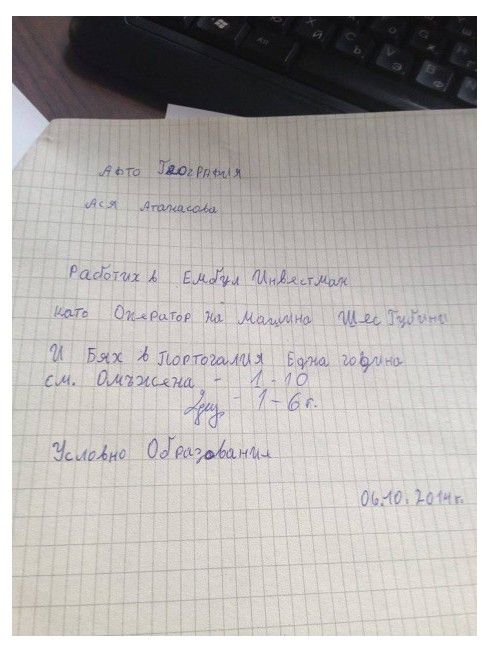 Афто География
Ася Атанасова
Работих в Ембул Инвестман
като Оператор на Машина Шес Губини
И Бях в Портогалия Една година
см. Омъжена - 1-10
2дец - 1-6г.
Условно Образования
06.10.2014г.